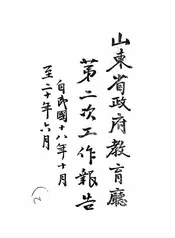 山東省政府教育廳
第二次工作報告
自民國十八年十月
至二十年六月
(乙)